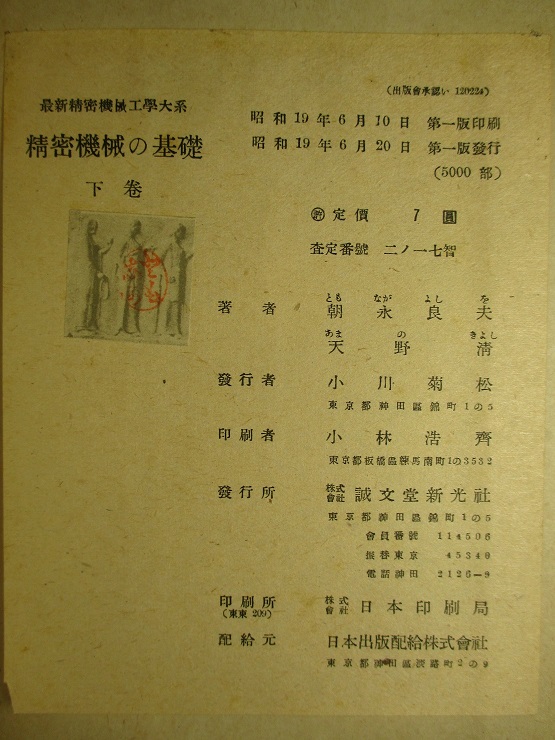 (出版會承認い 120224)
最新精密機械工學大系
精密機械の基礎
下卷
昭和19年6月10日 第一版印刷
昭和19年6月20日 第一版發行
(5000 部)
定價 7 圓
査定番號 二ノ一七智
著者 朝永良夫
とも なが よし を
天野清
あま の きよし
發行者 小川菊松
東京都神田區錦町1の5
印刷者 小林浩齊
東京都板橋區練馬南町1の3532
發行所 株式會社 誠文堂新光社
東京都神田區錦町1の5
會員番號 114506
振替東京 45340
電話神田 2126-9
印刷所 株式會社 日本印刷局
(東東 209)
配給元 日本出版配給株式會社
東京都神田區淡路町2の9